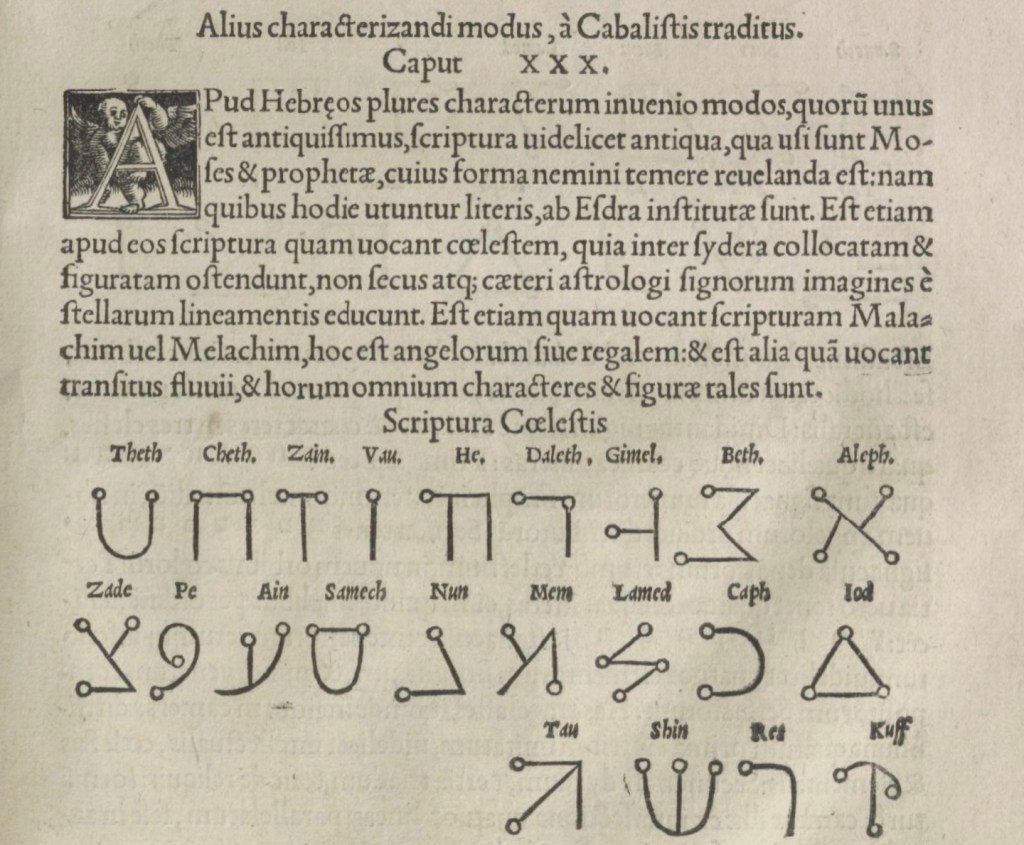 Alius characterizandi modus, à Cabalistis traditus.
Caput XXX.
APud Hebręos plures characterum inuenio modos, quorũ unus
est antiquissimus, scriptura uidelicet antiqua, qua usi sunt Mo-
ses & prophetæ, cuius forma nemini temere reuelanda est: nam
quibus hodie utuntur literis, ab Esdra institutæ sunt. Est etiam
apud eos scriptura quam uocant cœlestem, quia inter sydera collocatam &
figuratam ostendunt, non secus atq; cæteri astrologi signorum imagines è
stellarum lineamentis educunt. Est etiam quam uocant scripturam Mala-
chim uel Melachim, hoc est angelorum siue regalem: & est alia quã uocant
transitus fluuii, & horum omnium characteres & figuræ tales sunt.
Scriptura Cœlestis
Theth Cheth. Zain. Vau. He. Daleth. Gimel. Beth. Aleph.
Zade Pe Ain Samech Nun Mem Lamed Caph Iod
Tau Shin Res Kuff